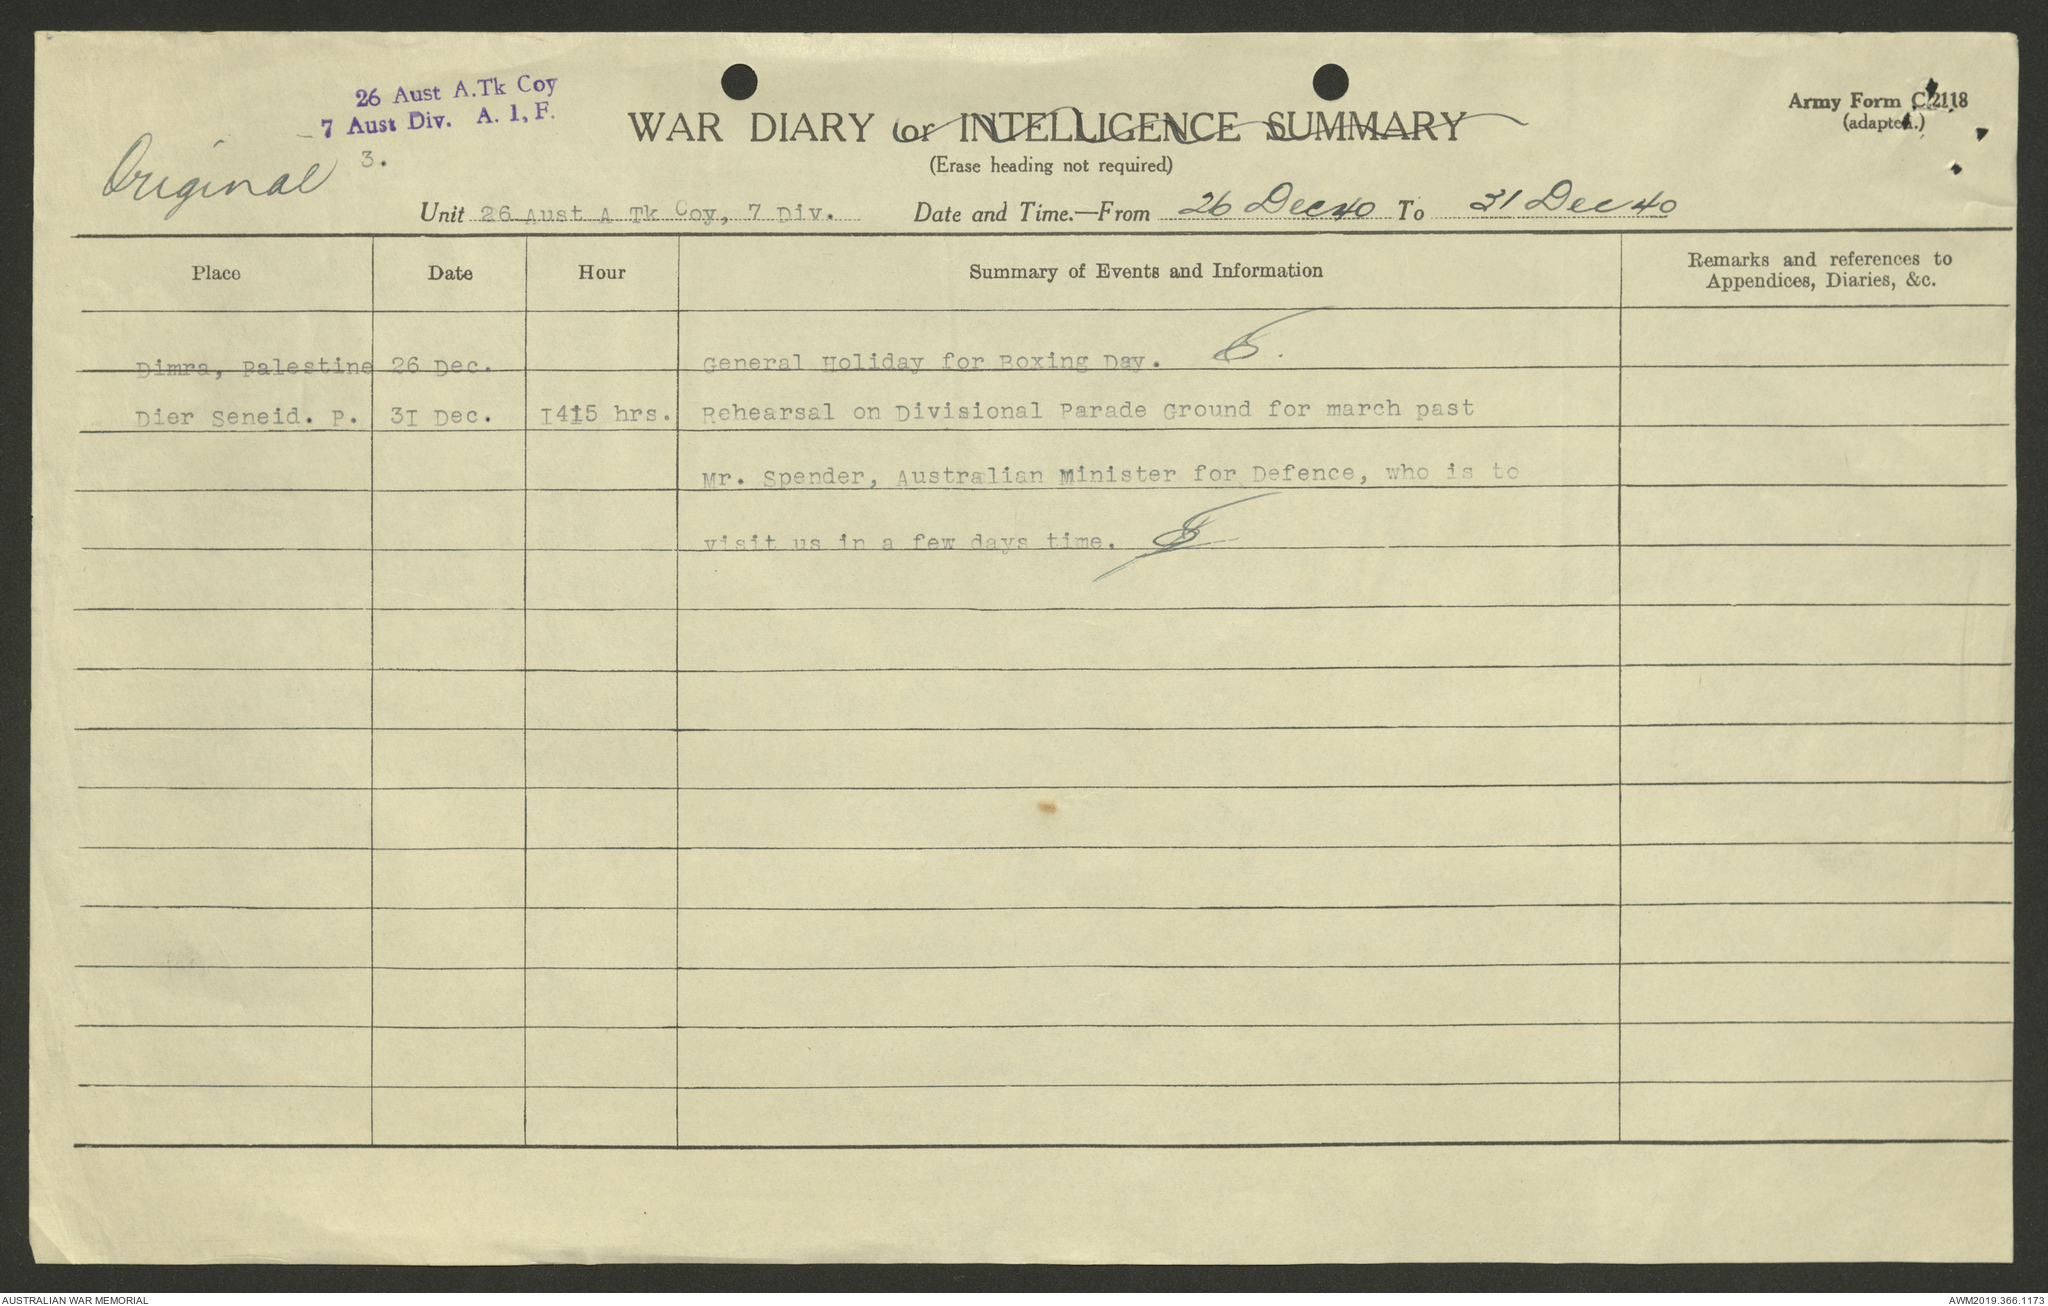 26 Aust A.Tk Coy
7 Aust Div. A. I. F.
3.
Original
WAR DIARY or INTELLIGENCE SUMMARY
(Erase heading not required)
Army Form C 2118
(adapted.)
Unit 26 Aust A Tk Coy, 7 Div. Date and Time.—From 26 Dec 40 To 31 Dec 40
Place Date Hour Summary of Events and Information Remarks and references to
Appendices, Diaries, &c.
Dimra, Palestine 26 Dec. General Holiday for Boxing Day.
Dier Seneid. P. 31 Dec. 1415 hrs. Rehearsal on Divisional Parade Ground for march past
Mr. Spender, Australian Minister for Defence, who is to
visit us in a few days time.
AUSTRALIAN WAR MEMORIAL
AWM2019.366.1173